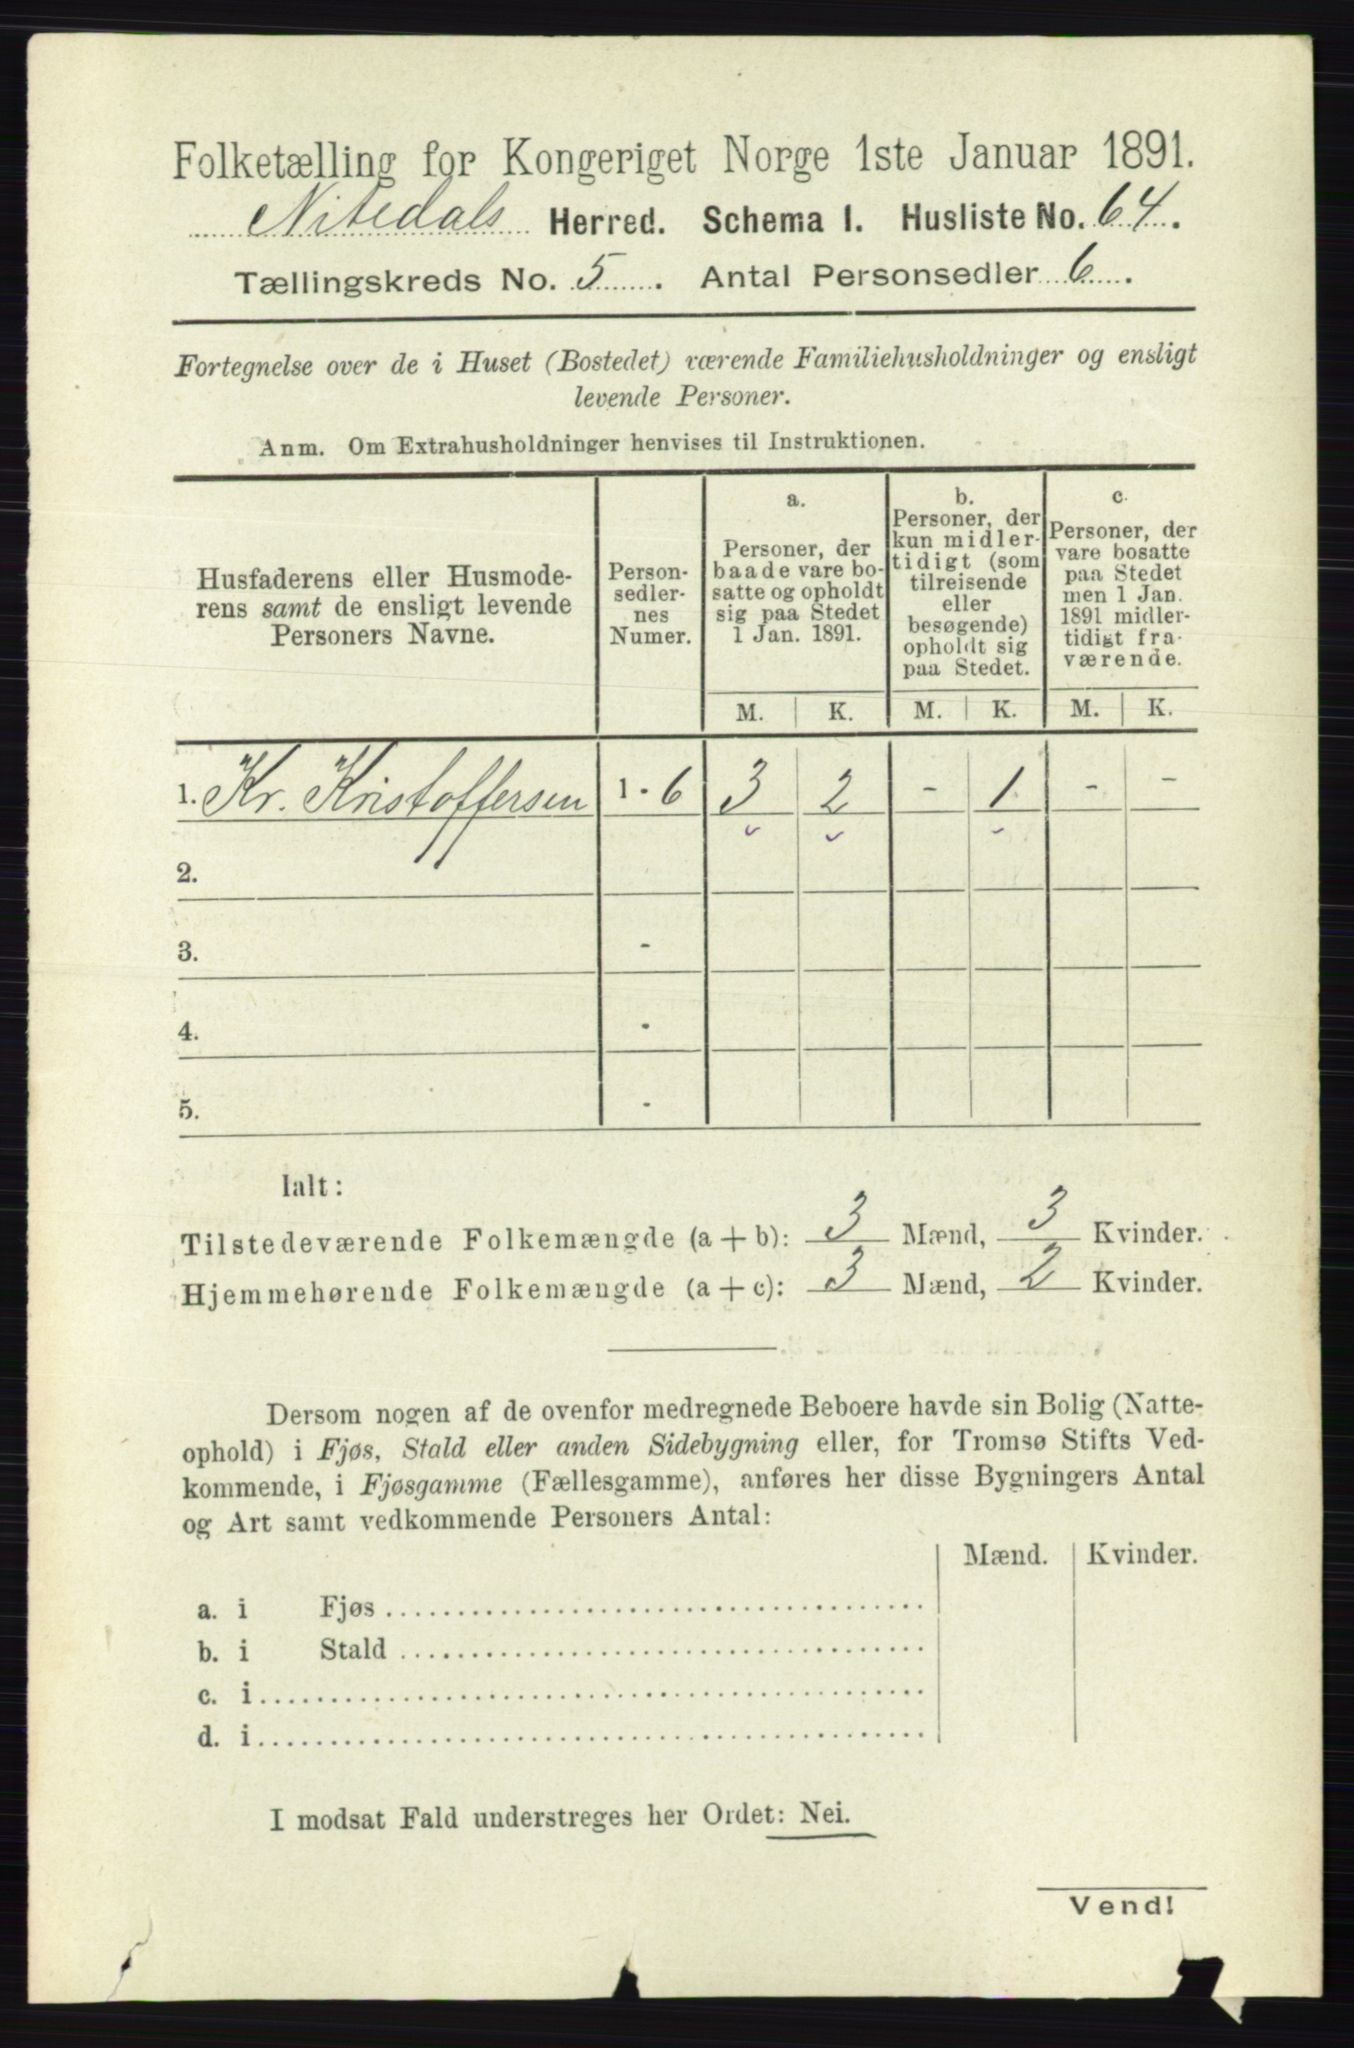 Folketælling for Kongeriget Norge 1ste Januar 1891.
Nitedals Herred. Schema I. Husliste No. 64.
Tællingskreds No. 5. Antal Personsedler 6.
Fortegnelse over de i Huset (Bostedet) værende Familiehusholdninger og ensligt
levende Personer.
Anm. Om Extrahusholdninger henvises til Instruktionen.
Husfaderens eller Husmode-
rens samt de ensligt levende
Personers Navne.
Person-
sedler-
nes
Numer.
a.
Personer, der
baade vare bo-
satte og opholdt
sig paa Stedet
1 Jan. 1891.
b.
Personer, der
kun midler-
tidigt (som
tilreisende
eller
besøgende)
opholdt sig
paa Stedet.
c.
Personer, der
vare bosatte
paa Stedet
men 1 Jan.
1891 midler-
tidigt fra-
værende.
M. K. M. K. M. K.
1. Kr. Kristoffersen 1 - 6 3 2 - 1 - -
2.
3. -
4. -
5. -
Ialt:
Tilstedeværende Folkemængde (a + b): 3 Mænd, 3 Kvinder.
Hjemmehørende Folkemængde (a + c): 3 Mænd, 2 Kvinder.
Dersom nogen af de ovenfor medregnede Beboere havde sin Bolig (Natte-
ophold) i Fjøs, Stald eller anden Sidebygning eller, for Tromsø Stifts Ved-
kommende, i Fjøsgamme (Fællesgamme), anføres her disse Bygningers Antal
og Art samt vedkommende Personers Antal:
Mænd. Kvinder.
a. i Fjøs
b. i Stald
c. i
d. i
I modsat Fald understreges her Ordet: Nei.
Vend!